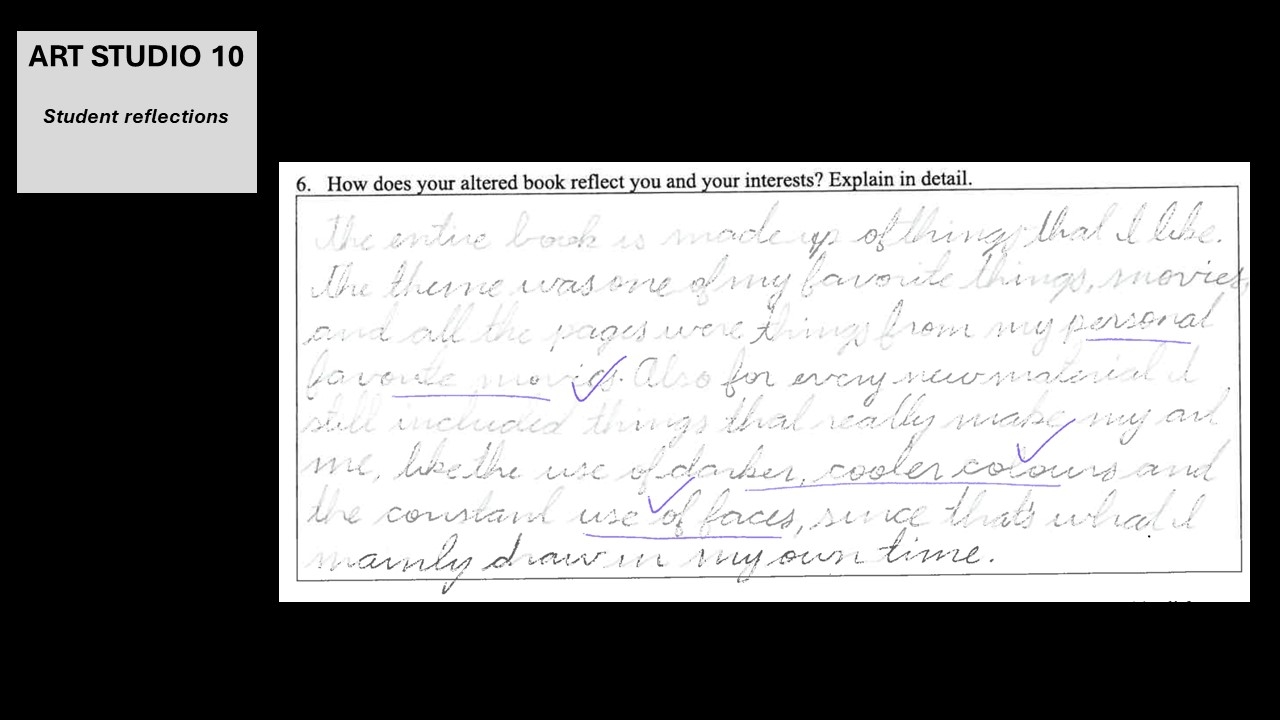 ART STUDIO 10
Student reflections
6. How does your altered book reflect you and your interests? Explain in detail.
The entire book is made up of things that I like.
The theme was one of my favorite things, movies,
and all the pages were things from my personal
favourite movies. Also for every new material I
still included things that really make my art
me, like the use of darker, cooler colours and
the constant use of faces, since that's what I
mainly draw in my own time.